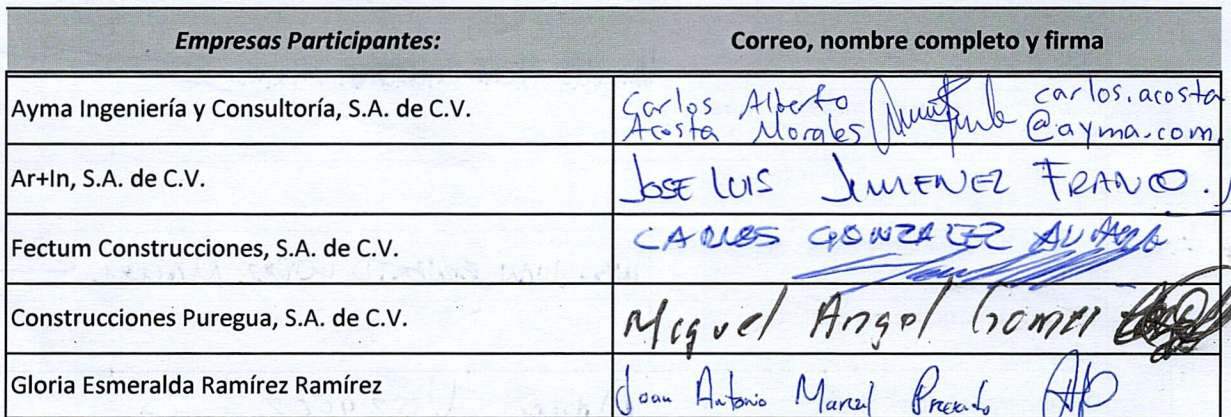 Empresas Participantes: Correo, nombre completo y firma
Ayma Ingeniería y Consultoría, S.A. de C.V.
Carlos Alberto carlos.acosta
Acosta Morales @ayma.com
Ar+In, S.A. de C.V.
JOSE LUIS JIMENEZ FRANCO.
Fectum Construcciones, S.A. de C.V.
CARLOS GONZALEZ
Construcciones Puregua, S.A. de C.V.
Miguel Angel Gomez
Gloria Esmeralda Ramírez Ramírez
Juan Antonio